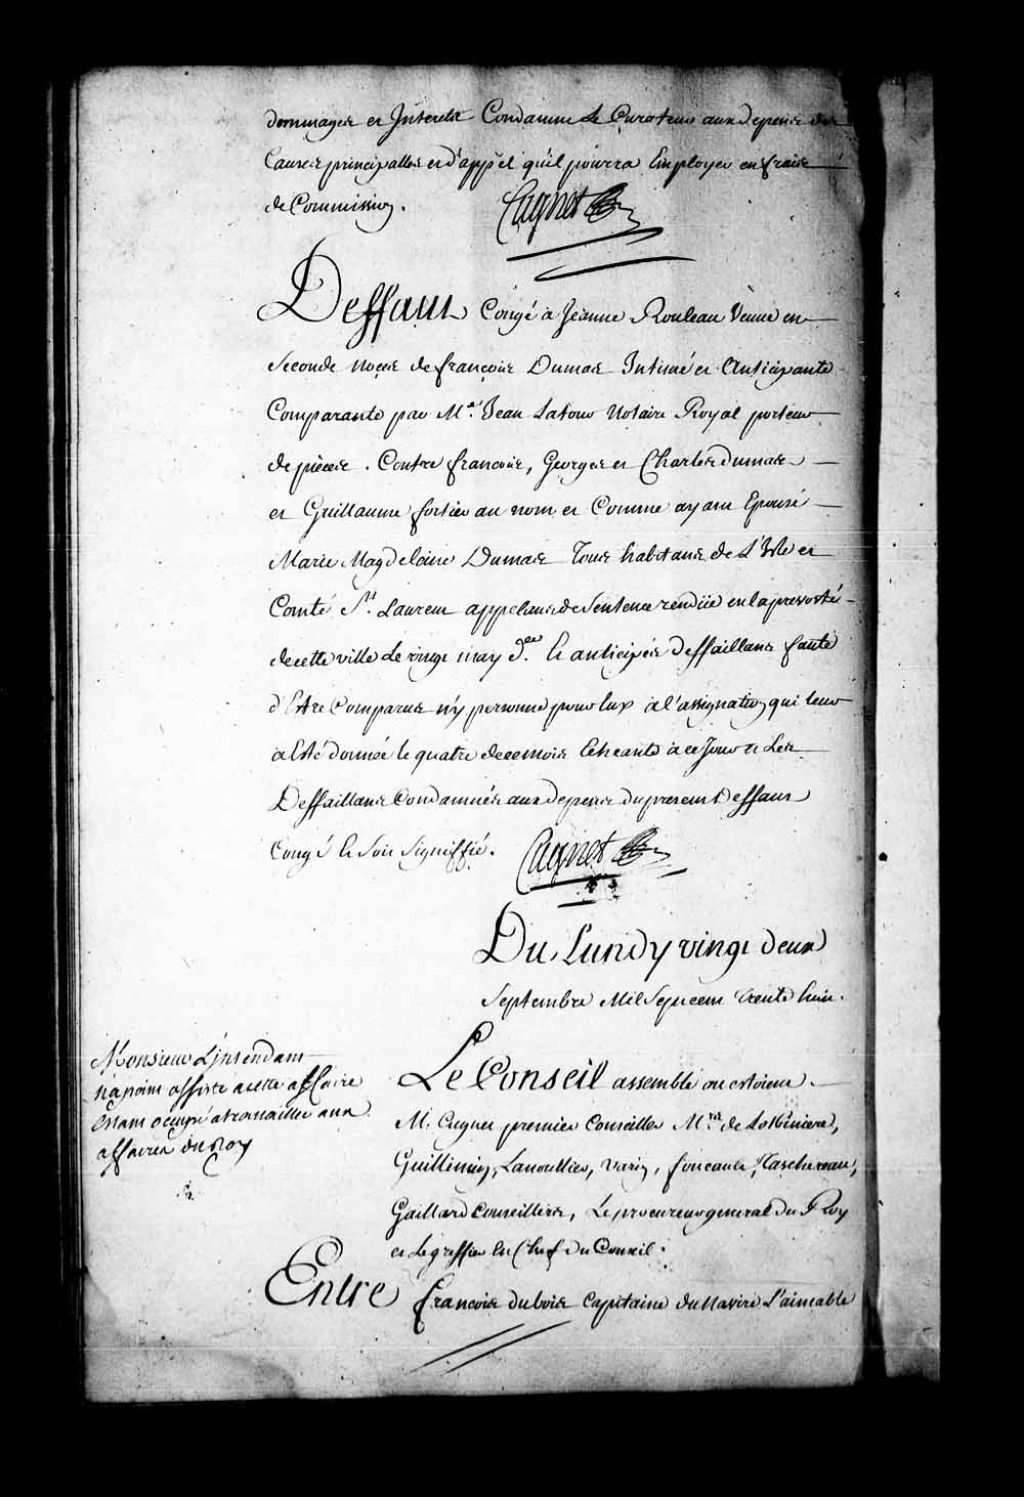 dommages et Interests Condamne Le Curateur aux depens des
Causes principalles et d'appel qu'il pourra Employer en frais
de Commission.
Cugnet
Deffaut Congé a Jeanne Rouleau Veuve en
Seconde noces de françois Dumas Intimé et Anticipante
Comparante par Me. Jean Latour Notaire Royal porteur
de pieces. Contre francois, Georges et Charles dumas
et Guillaume fortier au nom et Comme ayant Epousé
Marie Magdelaine Dumas Tous habitans de L'Isle et
Comté St. Laurent appelans de Sentence rendüe en la prevosté
de cette ville Le vingt may der. et anticipés Deffaillans faute
d'Etre Comparus n'y personne pour Eux a l'assignation qui leur
a Esté donnée le quatre de ce mois Echeante a ce Jour et Les
Deffaillans Condamnés aux depens du present Deffaut
Congé et Soit Signiffié.
Cugnet
Du Lundy vingt deux
Septembre Mil Sept cent trente huit.
Monsieur L'jntendant
n'a point assisté a cette affaire
Etant occupé a travailler aux
affaires du Roy
Le Conseil assemblé ou estoient.
M. Cugnet premier Conseiller Mrs. de Lotbiniere,
Guillimin, Lanoullier, varin, foucault, Taschereau,
Gaillard Conseillers, Le procureur general du Roy
et Le greffier En Chef du Conseil.
Entre francois dubois Capitaine du Navire L'aimable